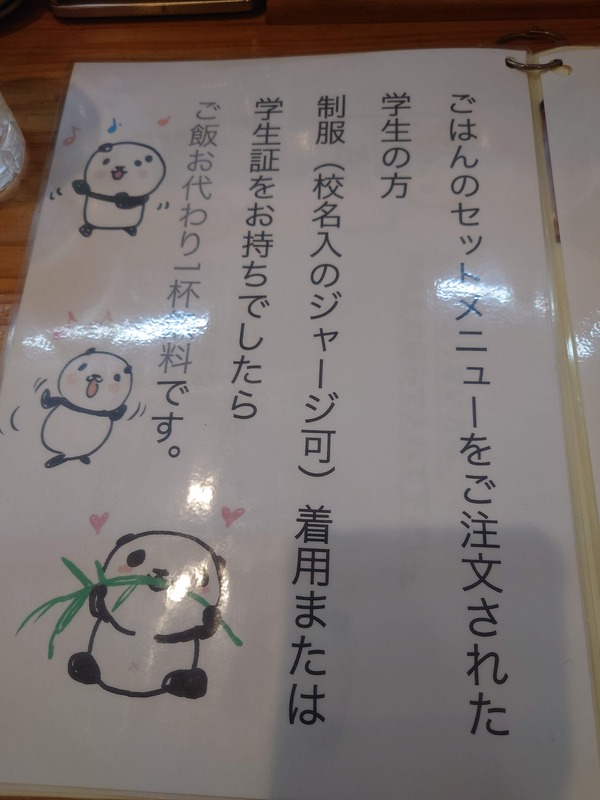 ごはんのセットメニューをご注文された
学生の方
制服（校名入のジャージ可）着用または
学生証をお持ちでしたら
ご飯お代わり1杯無料です。